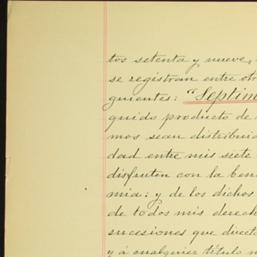 tos setenta y nueve,
se registran entre otr
guientes: "Septim
quido producto de
mos sean distribuid
dad entre mis siete
disfruten con la ben
mia: y de los dichos
de todos mis derech
sucesiones que direct
y á cualquier título